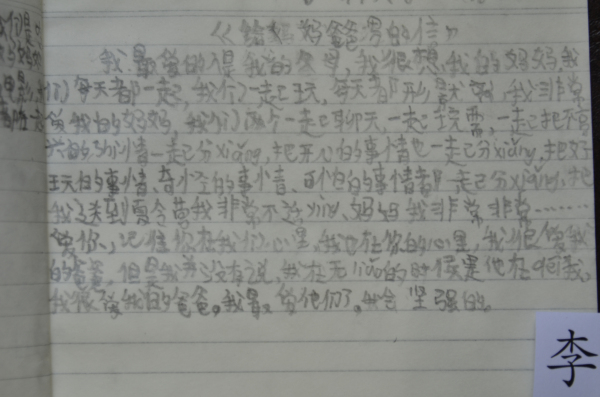 《给妈妈爸爸写的信》
我最爱的人是我的父母，我很想我的妈妈我
们每天都一起，我们一起玩，每天都形影不离，我非常
爱我的妈妈，我们两个一起聊天，一起玩耍，一起把不高
兴的事情一起分xiǎng，把开心的事情也一起分xiǎng，把好
玩的事情、奇怪的事情、可怕的事情都一起分xiǎng，把
我送到夏令营我非常不适yìng，妈妈我非常非常……
爱你，记住你在我们心里，我也在你的心里，我很爱我
的爸爸，但是我并没有说，我在无聊的时候是他在陪我，
我很爱我的爸爸。我最爱他们了。我会坚强的。
李